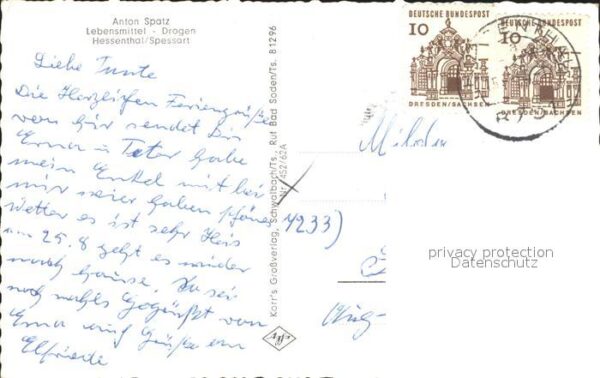 Anton Spatz
Lebensmittel - Drogen
Hessenthal/Spessart
Liebe Tante
Die Herzlichen Feriengrüße
von hir sendet Dir
Erna u Peter habe
mein Enkel mit hir
mir seier haben schönes
Wetter es ist sehr Heis
am 25.8 geht es wieder
nach hause. Du sei
noch mahls Gegrüßt von
Erna auf Grüße an
Elfriede
Korr's Großverlag, Schwalbach/Ts., Ruf Bad Soden/Ts. 81296
Nr. 452/62A
DEUTSCHE BUNDESPOST
10
DRESDEN/SACHSEN
DEUTSCHE BUNDESPOST
10
DRESDEN/SACHSEN
4233)
privacy protection
Datenschutz